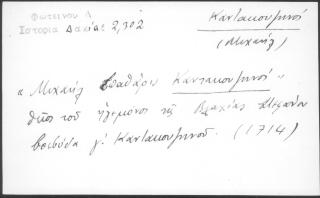 Φωτεινου Δ
Ιστορία Δακίας 2,302
Καντακουζηνοί
(Μιχαήλ)
"Μιχαήλ Σπαθάριο Καντακουζηνοί"
θείος τοῦ ἡγεμόνος τῆς Βλαχίας Στεφάνου
βοεβόδα γ' Καντακουζηνοῦ. (1714)